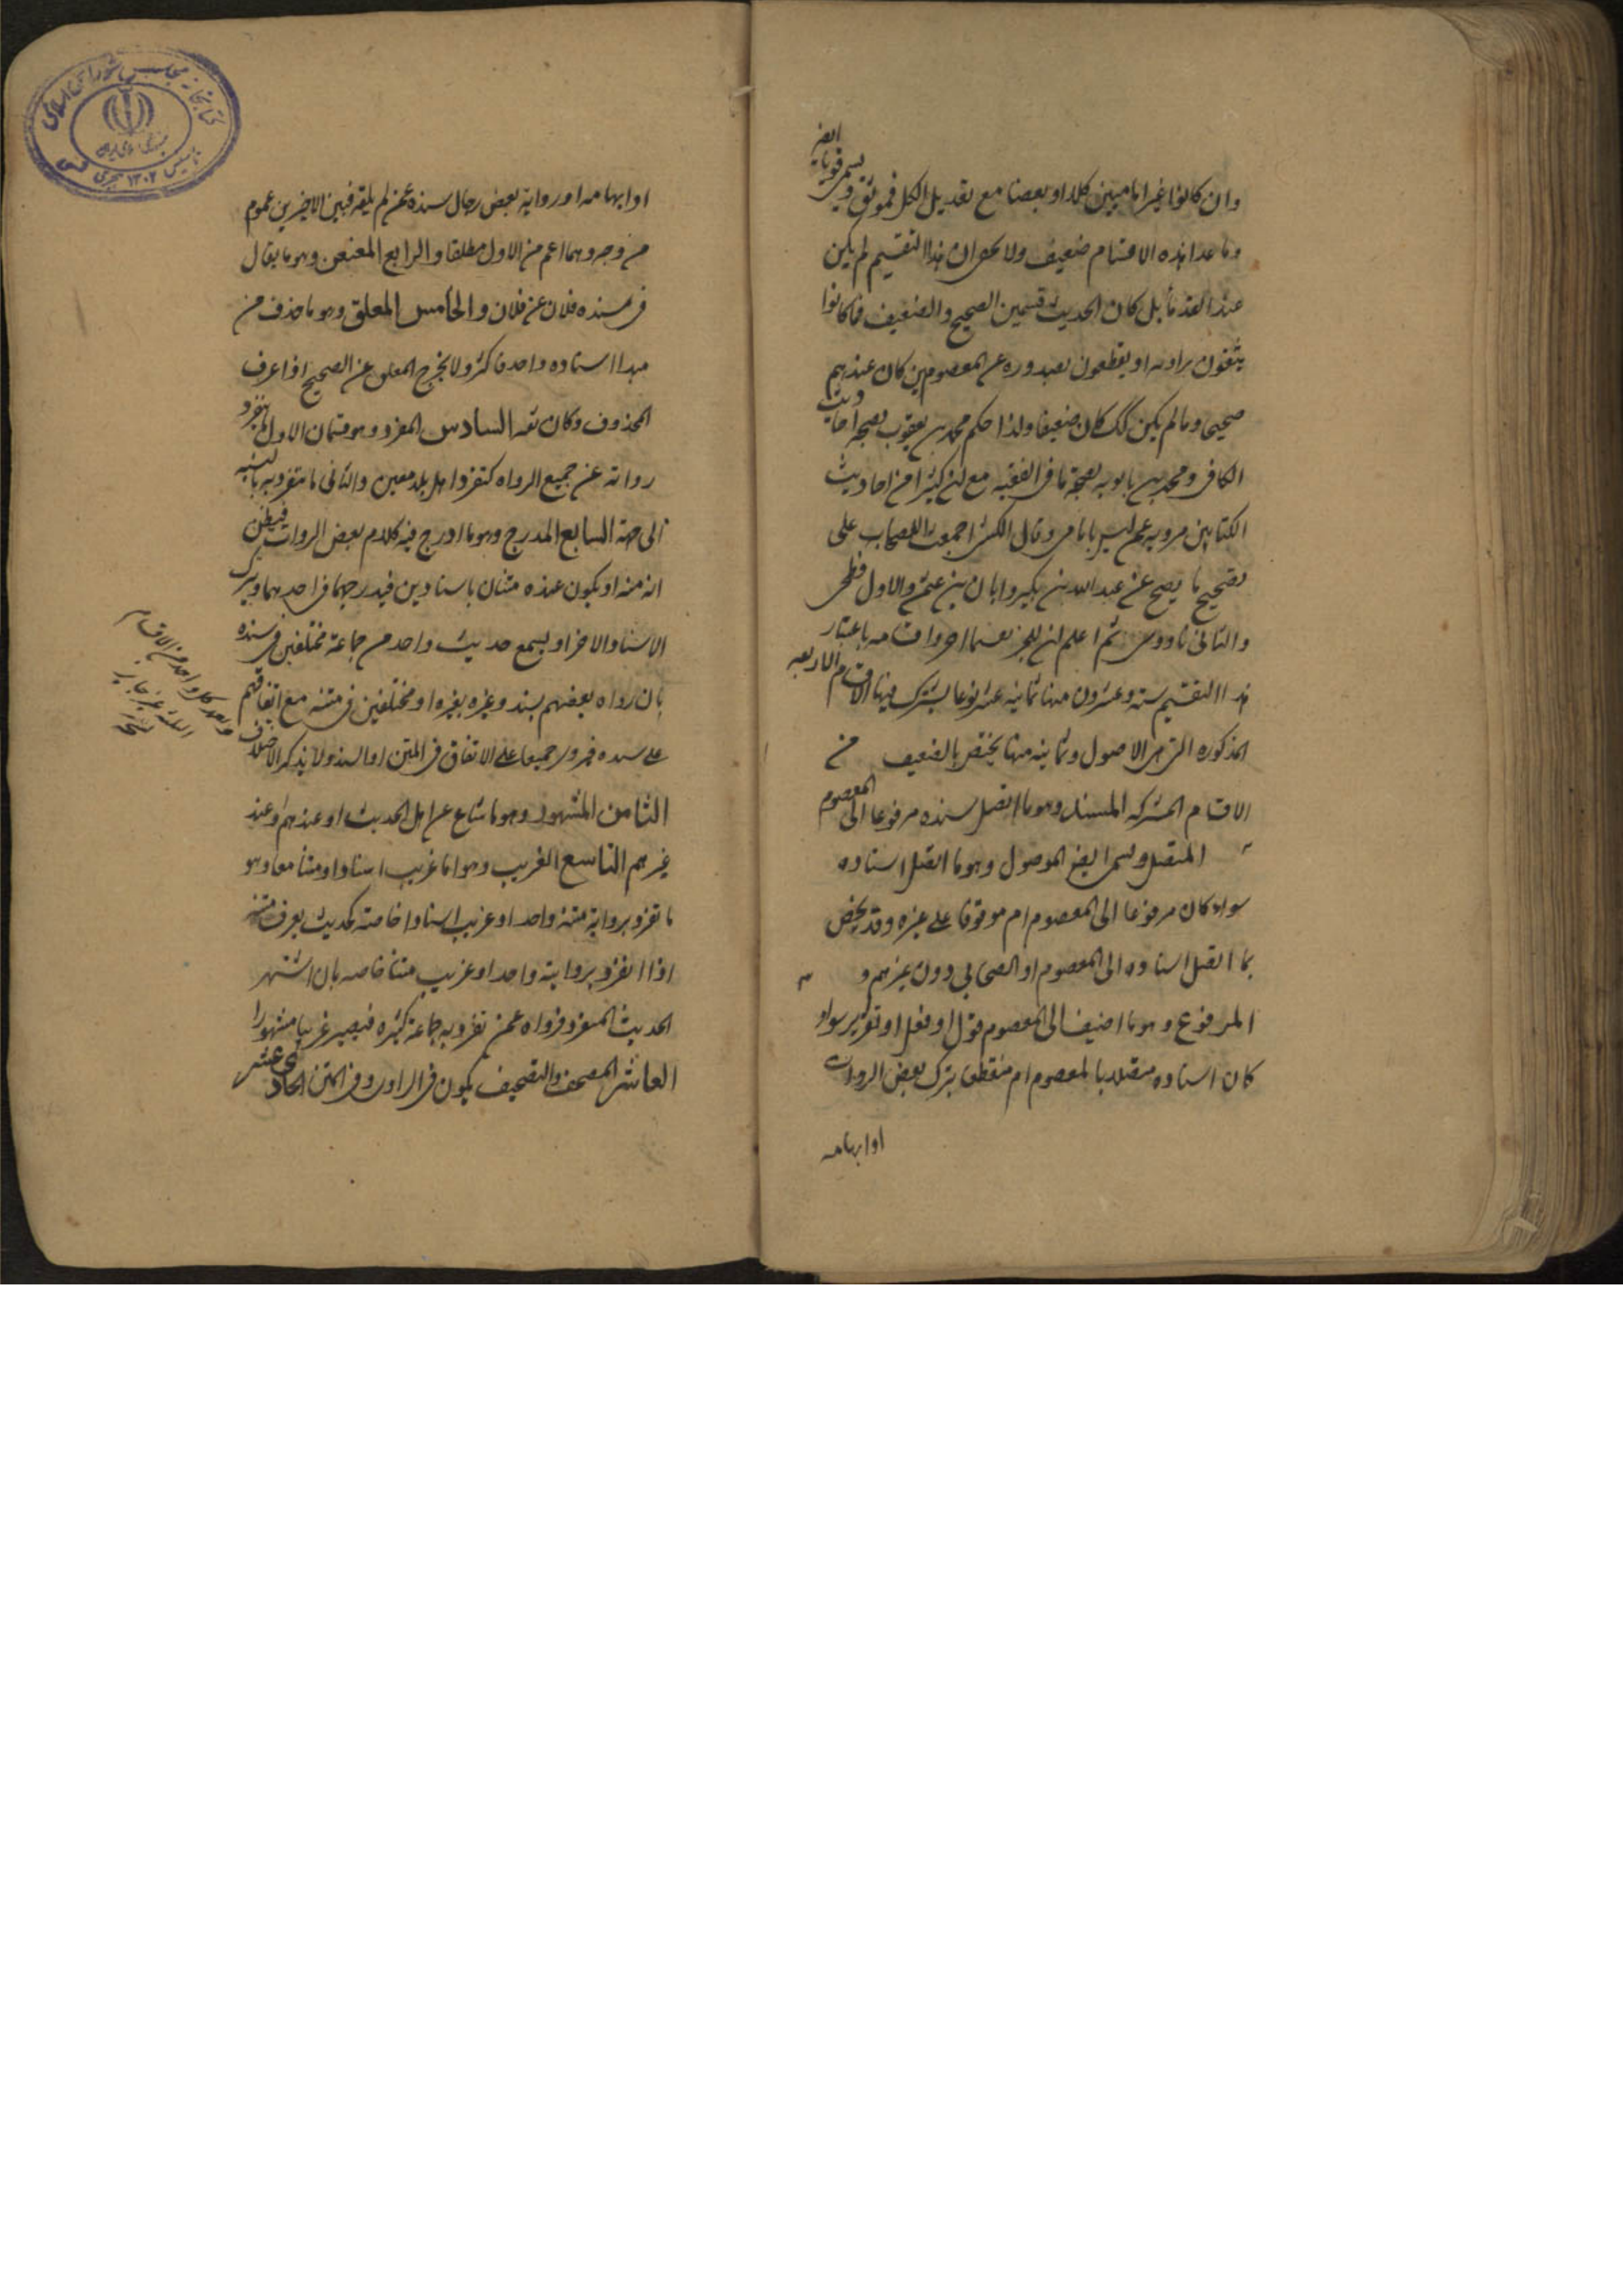 وان كانوا غير اماميين كلا او بعضا مع تعديل الكل فموثق و يسمى قويا ايض
وما عدا هذه الاقسام ضعيف ولا يخفى ان هذا التقسيم لم يكن
عند القدماء بل كان الحديث قسمين الصحيح والضعيف فما كانوا
يثقون براويه او يقطعون بصدوره عن المعصومين كان عندهم
صحيحا وما لم يكن كك كان ضعيفا ولذا حكم محمد بن يعقوب بصحة احاديث
الكافي ومحمد بن بابويه بصحة ما في الفقيه مع ان كثيرا من احاديث
الكتابين مرويه عمن ليس بامامي وقال الكشي اجمعت العصابه على
تصحيح ما يصح عن عبد الله بن بكير و ابان بن عثمن والاول فطحي
والثاني ناووسي ثم اعلم ان للخبر اقسامه باعتبار
هذا التقسيم ستة وعشرون منها ثمانيه عشر نوعا يشترك فيها الاقسام الاربعه
المذكوره التي هي الاصول وثمانيه منها يختص بالضعيف فمن
الاقسام المشتركه المسند وهو ما اتصل سنده مرفوعا الى المعصوم
المتصل ويسمى ايض الموصول وهو ما اتصل اسناده
سواء كان مرفوعا الى المعصوم ام موقوفا على غيره وقد يخص
بما اتصل اسناده الى المعصوم او الصحابي دون غيرهم و
المرفوع وهو ما اضيف الى المعصوم قول او فعل او تقرير سواء
كان اسناده متصلا بالمعصوم ام منقطعا بترك بعض الروات
او ابهامه
او ابهامه او رواية بعض رجال سنده عمن لم يلقه فبين الاخيرين عموم
من وجه وهما اعم من الاول مطلقا والرابع المعنعن وهو ما يقال
في سنده فلان عن فلان والخامس المعلق وهو ما حذف من
مبدا اسناده واحد فاكثر ولا يخرج المعلق عن الصحيح اذا عرف
المحذوف وكان ثقه السادس المفرد وهو قسمان الاول ينفرد
رواته عن جميع الرواه كتفرد اهل بلد معين والثاني ما يتفرد به بالنسبه
الى جهة السابع المدرج وهو ما ادرج فيه كلام بعض الروات فيظن
انه منه او يكون عنده متنان باسنادين فيدرجهما في احدهما ويترك
الاسناد الاخر او يسمع حديث واحد من جماعة مختلفين في سنده
بان رواه بعضهم بسند وغيره بغيره او مختلفين في متنه مع اتفاقهم
على سنده فيروى جميعا على الاتفاق في المتن او السند ولا يذكر الاختلاف
الثامن المشهور وهو ما شاع عن اهل الحديث او عندهم وعند
غيرهم التاسع الغريب وهو اما غريب اسنادا ومتنا معا وهو
ما تفرد برواية متنه واحد او غريب اسنادا خاصة كحديث يعرف متنه
اذا انفرد بروايته واحد او غريب متنا خاصه بان اشتهر
الحديث المفرد فرواه عمن تفرد به جماعة كثيره فيصير غريبا مشهورا
العاشر المصحف والتصحيف يكون في الراوي وفي المتن الحادي عشر